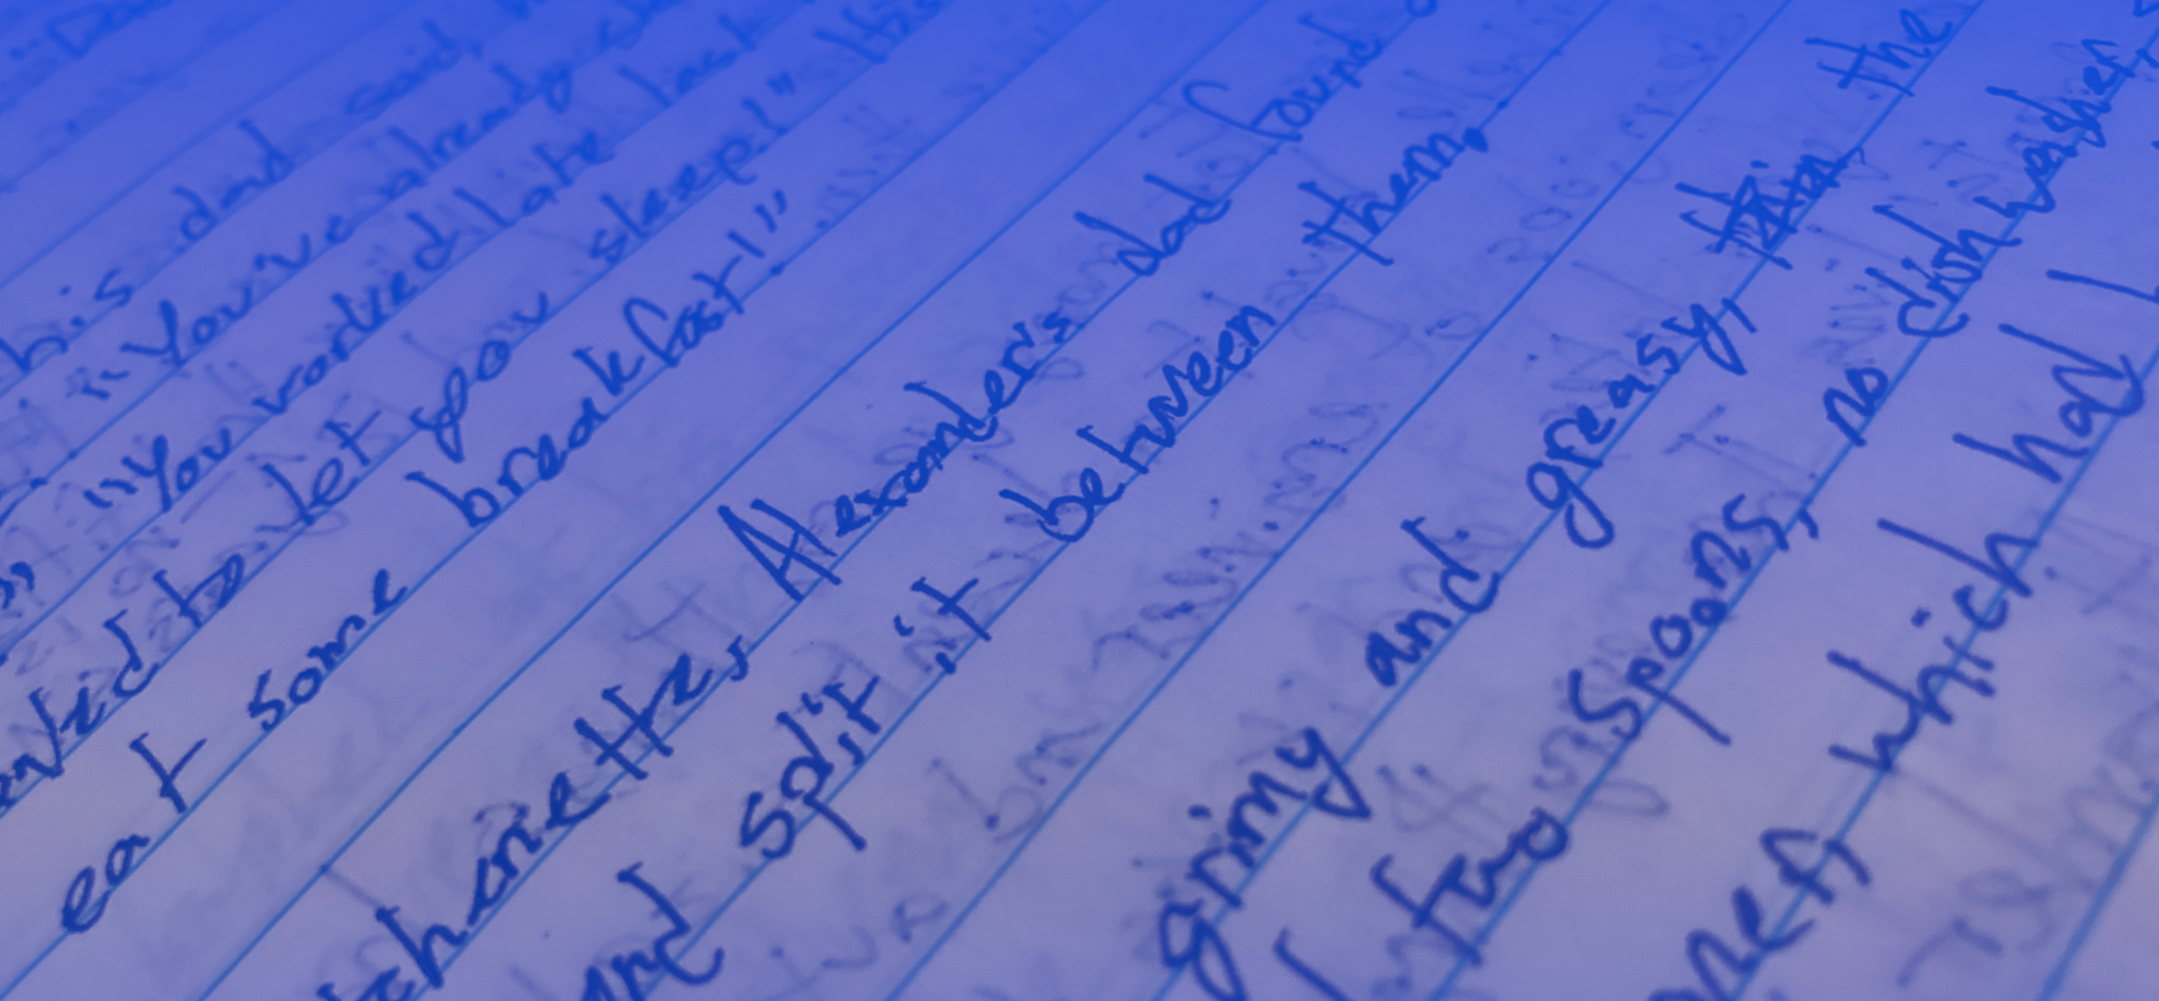 his dad said,
"You've already
" "You worked late last
wanted to let you sleep!" "It's
eat some breakfast!"
kitchenette, Alexander's dad found
and split it between them.
grimy and greasy, the
two spoons, no dishwasher,
which had